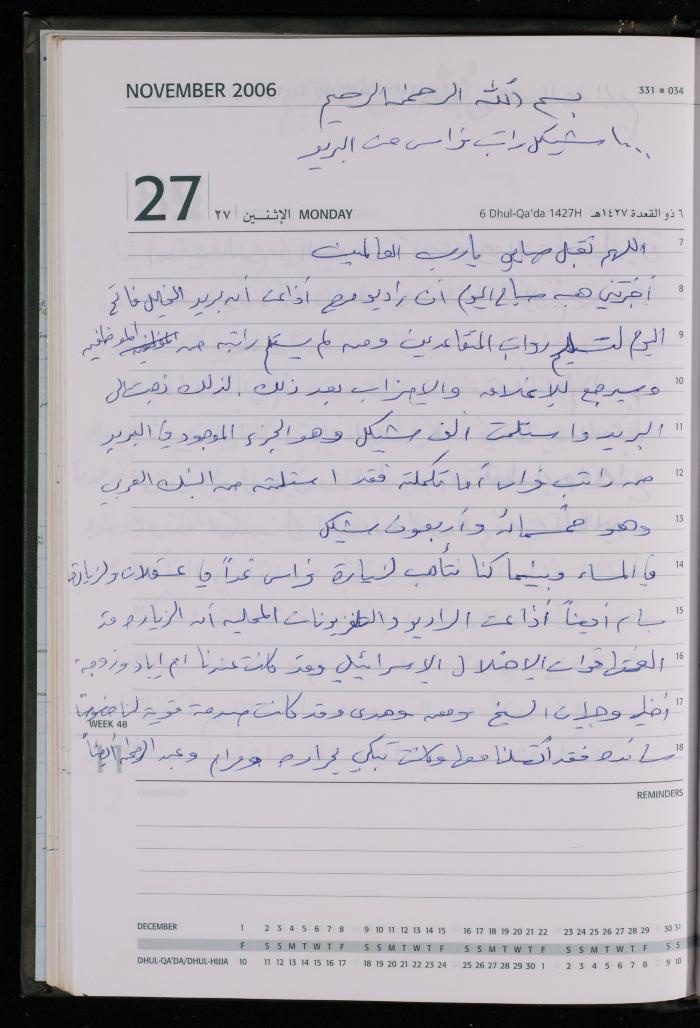 NOVEMBER 2006
331 ■ 034
بسم الله الرحمن الرحيم
١٠٠٠ شيكل راتب نواس من البريد
27 ٢٧ الإثنـــين MONDAY
6 Dhul-Qa'da 1427H ٦ ذو القعدة ١٤٢٧هـ
7 اللهم تقبل صيامي يا رب العالمين
8 أخبرتني هبه صباح اليوم أن راديو مرح أذاعت أن بريد الخليل فاتح
9 اليوم لتسليم رواتب المتقاعدين ومن لم يستلم راتبه من الموظفين الموظفين
10 وسيرجع للإغلاق والإضراب بعد ذلك . لذلك ذهبت الى
11 البريد واستلمت الف شيكل وهو الجزء الموجود في البريد
12 من راتب نواس أما تكملته فقد استلمته من البنك العربي
13 وهو خمسمائة وأربعون شيكل
14 في المساء وبينما كنا نتأهب لزيارة نواس غداً في عسقلان ولزيارة
15 بسام أيضاً أذاعت الراديو والتلفزيونات المحليه أن الزياره قد
16 الغتها قوات الاحتلال الإسرائيلي وقد كانت عندنا ام إياد وزوجة
17 أخيه وجيران الشيخ ومعه وهدى وقد كانت صدمة قوية لنا خصوصاً
WEEK 48
18 سانده فقد أتصلنا معها وكانت تبكي بحراره ومرام وعبد الرحمن أيضاً
REMINDERS
DECEMBER 1 2 3 4 5 6 7 8 9 10 11 12 13 14 15 16 17 18 19 20 21 22 23 24 25 26 27 28 29 30 31
F S S M T W T F S S M T W T F S S M T W T F S S M T W T F S S
DHUL-QA'DA/DHUL-HIJJA 10 11 12 13 14 15 16 17 18 19 20 21 22 23 24 25 26 27 28 29 30 1 2 3 4 5 6 7 8 9 10